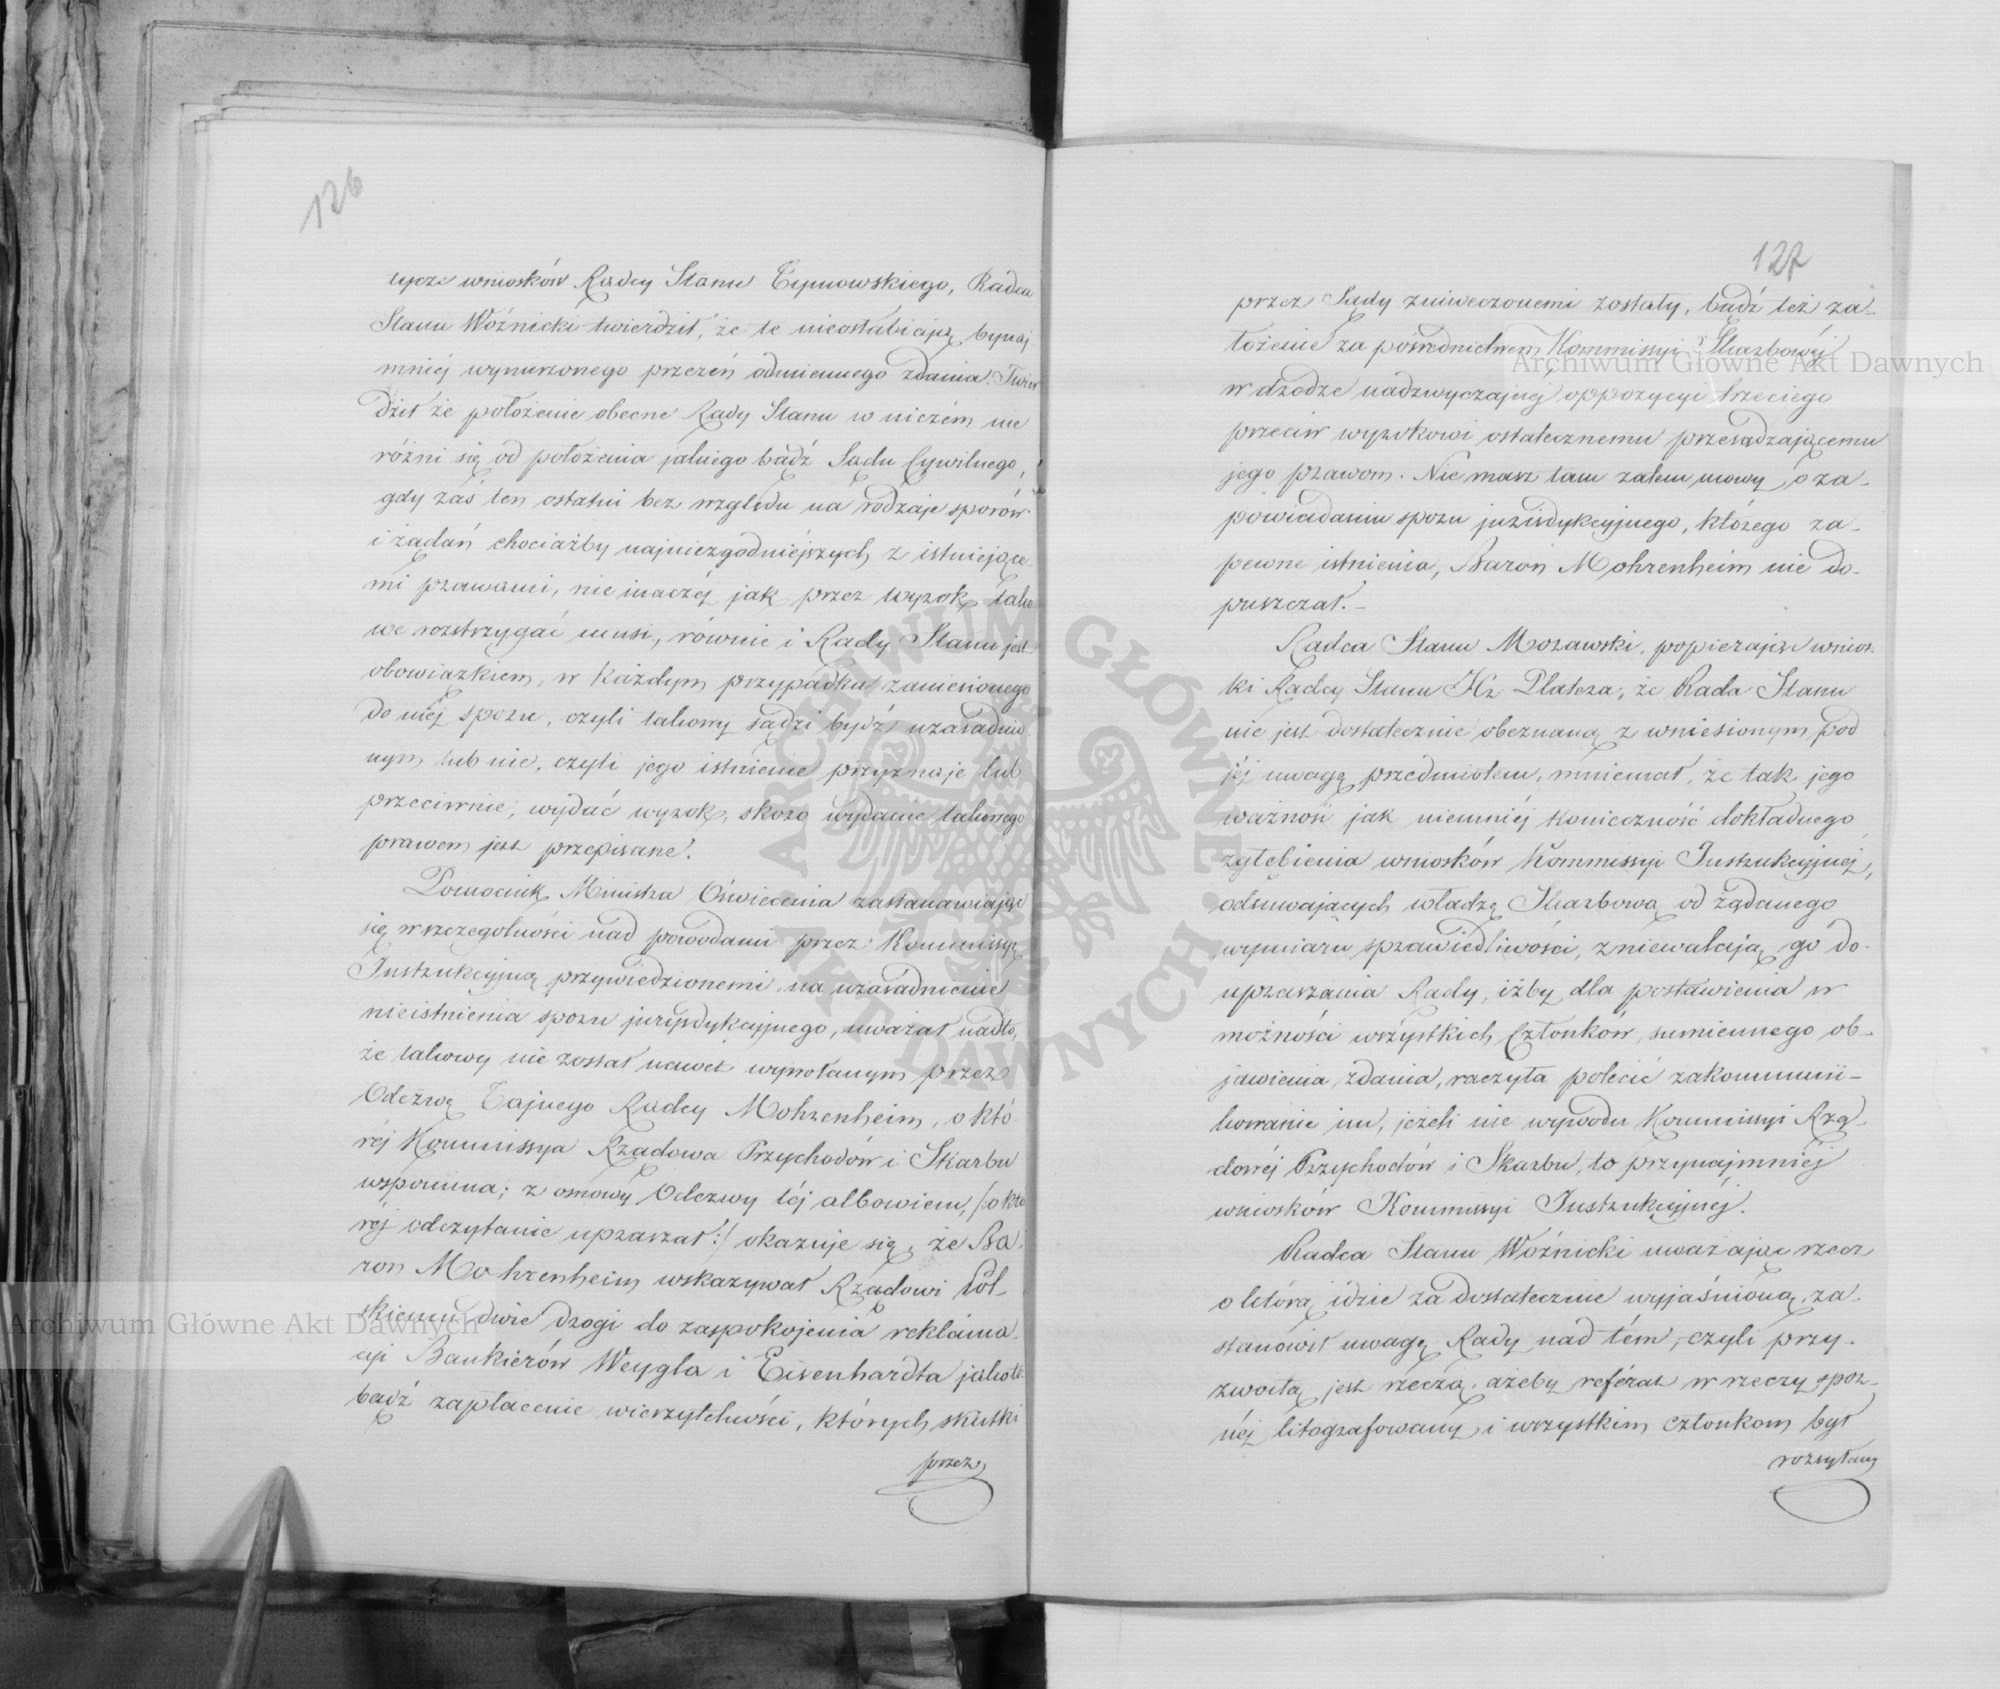 126
tycze wniosków Radcy Stanu Tymowskiego, Radca
Stanu Woźnicki twierdził, że te nieosłabiają bynaj-
mniéj wynurzonego przezeń odmiennego zdania. Twier
dził że położenie obecne Rady Stanu w niczém nie
różni się od położenia jakiego bądź Sądu Cywilnego,
gdy zaś ten ostatni bez względu na rodzaje sporów
i żądań chociażby najniezgodniéjszych z istniejące-
mi prawami, nie inaczéj jak przez wyrok tako
we rozstrzygać musi, równie i Rady Stanu jest
obowiązkiem, w każdym przypadku zaniesionego
do niéj sporu, czyli takowy sądzi bydź uzasadnio
nym lub nie, czyli jego istnienie przyznaje lub
przeciwnie, wydać wyrok, skoro wydanie takowego
prawem jest przepisane.
Pomocnik Ministra Oświecenia zastanawiając
się w szczególności nad powodami przez Kommissyę
Instrukcyjną przywiedzionemi na uzasadnienie
nieistnienia sporu juryzdykcyjnego, uważał nadto,
że takowy nie został nawet wywołanym przez
Odezwę Tajnego Radcy Mohrenheim, o któ-
réj Kommissya Rządowa Przychodów i Skarbu
wspomina; z osnowy Odezwy téj albowiem, /:o któ
réj odczytanie upraszał:/ okazuje się, że Ba-
ron Mohrenheim wskazywał Rządowi Pol-
skiemu dwie drogi do zaspokojenia reklama-
cyi Bankierów Weygla i Eisenhardta jakoto
bądź zapłacenie wierzytelności, których skutki
przez
127
przez Sądy zniweczonemi zostały, bądź też za-
łożenie za pośrednictwem Kommissyi Skarbowéj
w drodze nadzwyczajnéj oppozycyi trzeciego
przeciw wyrokowi ostatecznemu przesądzającemu
jego prawom. Nie masz tam zatem mowy o za-
powiadaniu sporu jurisdykcyjnego, którego za-
pewne istnienia, Baron Mohrenheim nie do-
puszczał.-
Radca Stanu Morawski, popierając wnios-
ki Radcy Stanu Hr. Platera, że Rada Stanu
nie jest dostatecznie obeznaną z wniesionym pod
jéj uwagę przedmiotem, mniemał, że tak jego
ważność jak niemniéj konieczność dokładnego
zgłębienia wniosków Kommissyi Instrukcyjnéj,
odsuwających władzę Skarbową od żądanego
wymiaru sprawiedliwości, zniewalają go do-
upraszania Rady, iżby dla postawienia w
możności wszystkich Członków sumiennego ob-
jawienia zdania, raczyła polecić zakommuni-
kowanie im, jeżeli nie wywodu Kommissyi Rzą-
dowéj Przychodów i Skarbu, to przynajmniéj
wniosków Kommissyi Instrukcyjnéj.
Radca Stanu Woźnicki uważając rzecz
o którą idzie za dostatecznie wyjaśnioną, za-
stanowił uwagę Rady nad tém, czyli przy-
zwoitą jest rzeczą, ażeby referat w rzeczy spor-
néj litografowany i wszystkim członkom był
rozsyłany
Archiwum Główne Akt Dawnych
Archiwum Główne Akt Dawnych
ARCHIWUM GŁÓWNE AKT DAWNYCH